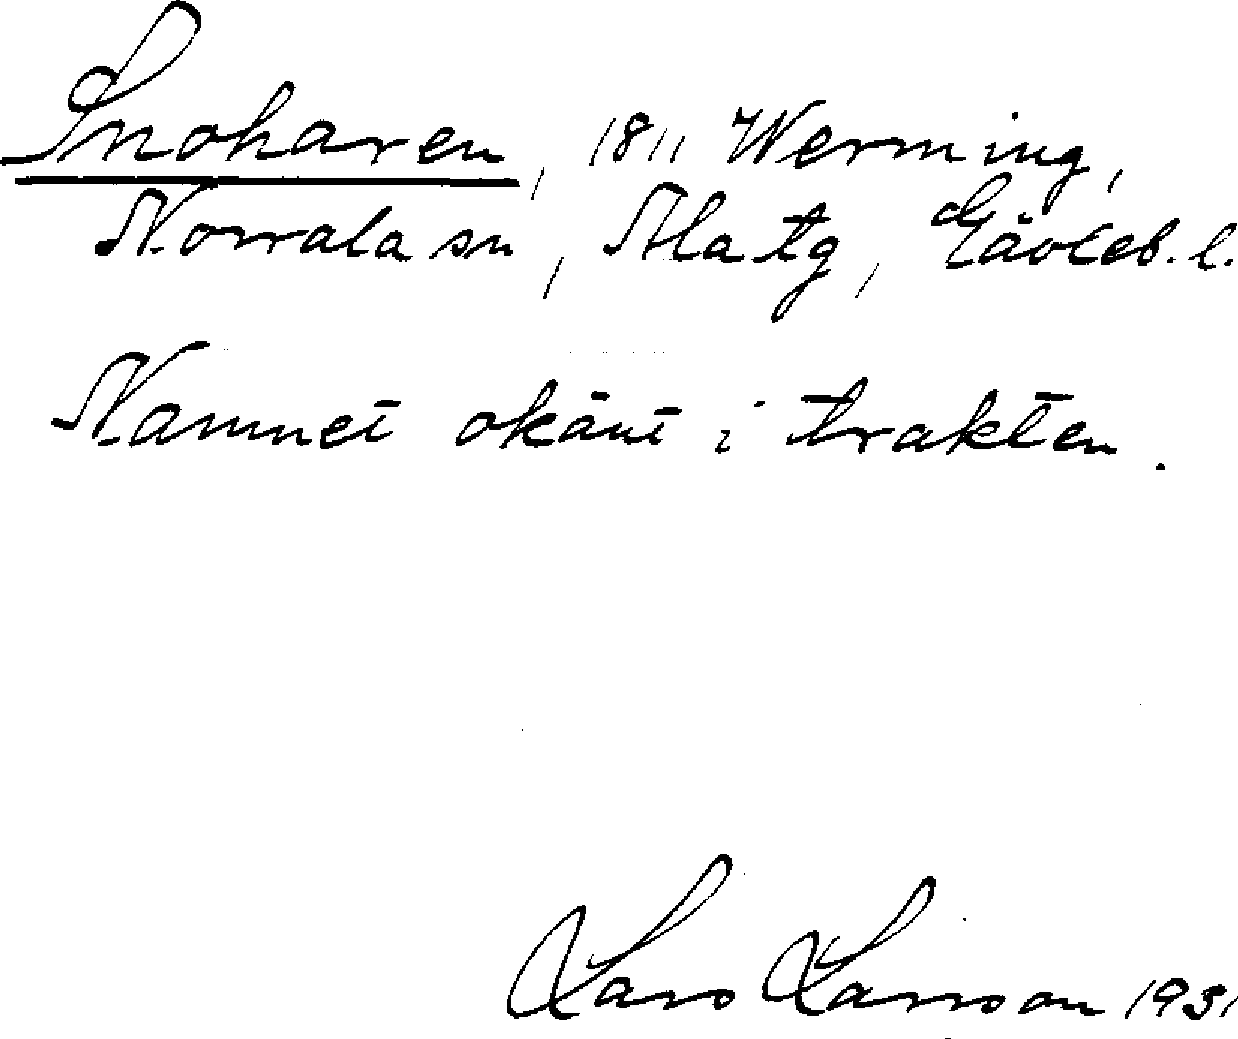 Snoharen, 1811 Werming,
Norrala sn, Ala tg, Gävleb. l.
Namnet okänt i trakten.
Lars Larsson 1931